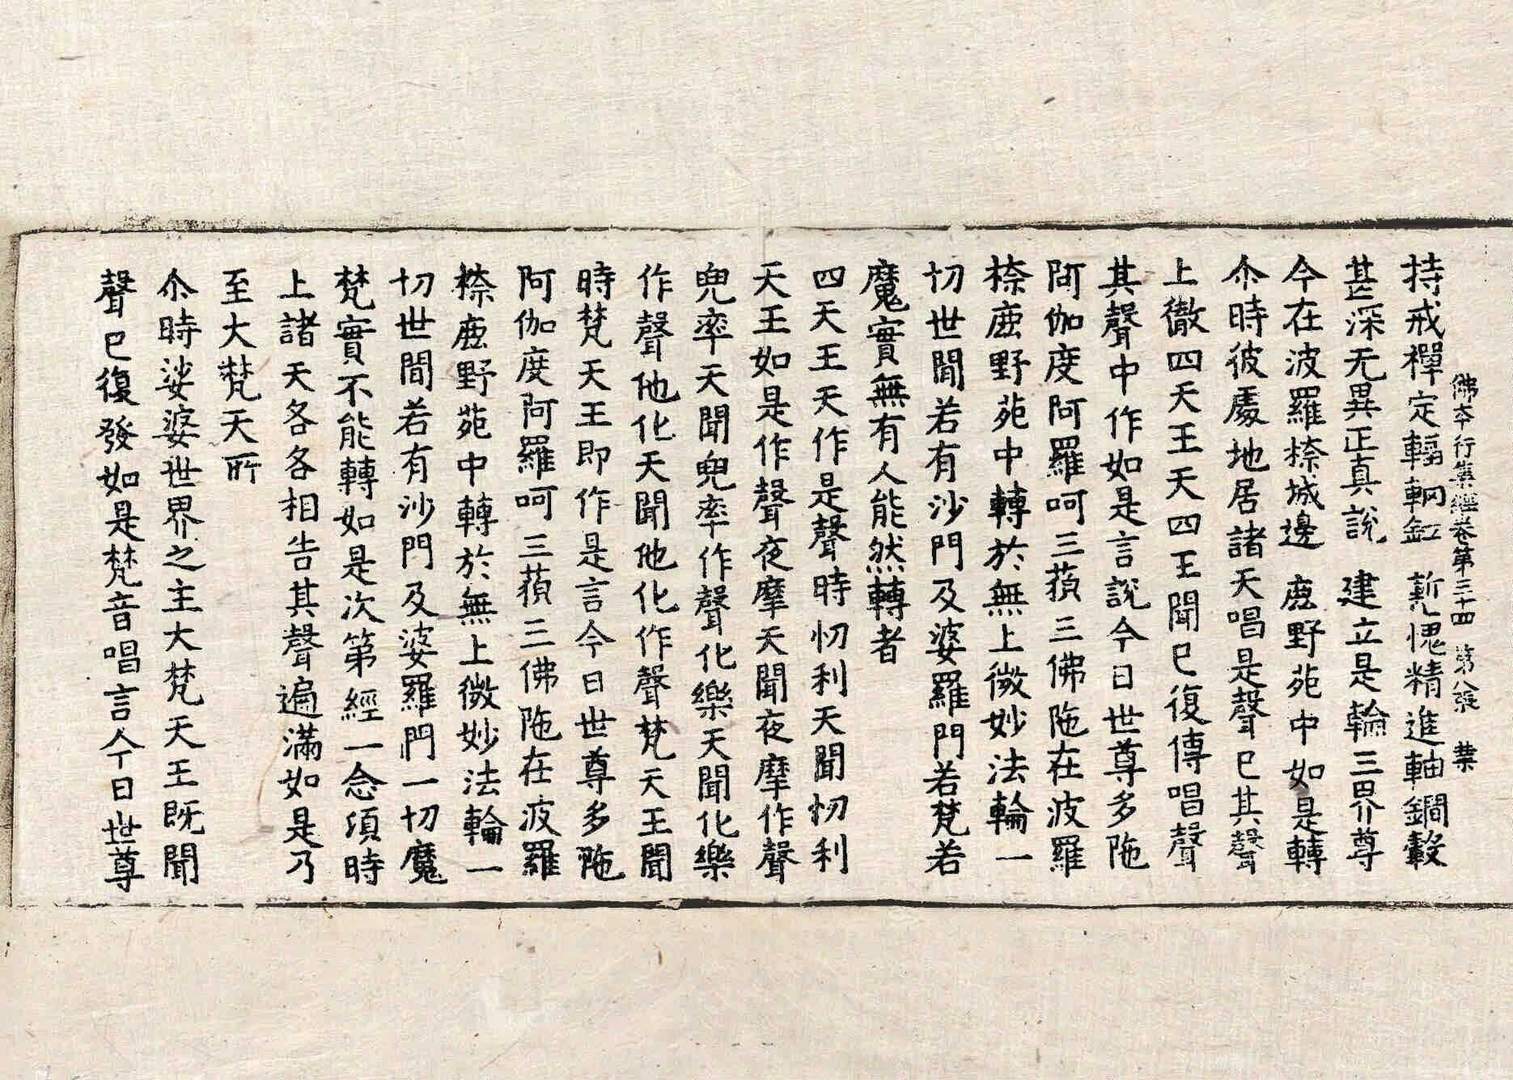 佛本行集經卷第三十四 第八張 業
持戒禪定輻輞釭 慙愧精進軸鐧轂
甚深无異正真說 建立是輪三界尊
今在波羅㮈城邊 鹿野苑中如是轉
尒時彼處地居諸天唱是聲已其聲
上徹四天王天四王聞已復傳唱聲
其聲中作如是言說今日世尊多陁
阿伽度阿羅呵三藐三佛陁在波羅
㮈鹿野苑中轉於無上微妙法輪一
切世間若有沙門及婆羅門若梵若
魔實無有人能然轉者
四天王天作是聲時忉利天聞忉利
天王如是作聲夜摩天聞夜摩作聲
兜率天聞兜率作聲化樂天聞化樂
作聲他化天聞他化作聲梵天王聞
時梵天王即作是言今日世尊多陁
阿伽度阿羅呵三藐三佛陁在波羅
㮈鹿野苑中轉於無上微妙法輪一
切世間若有沙門及婆羅門一切魔
梵實不能轉如是次第經一念頃時
上諸天各各相告其聲遍滿如是乃
至大梵天所
尒時娑婆世界之主大梵天王既聞
聲已復發如是梵音唱言今日世尊